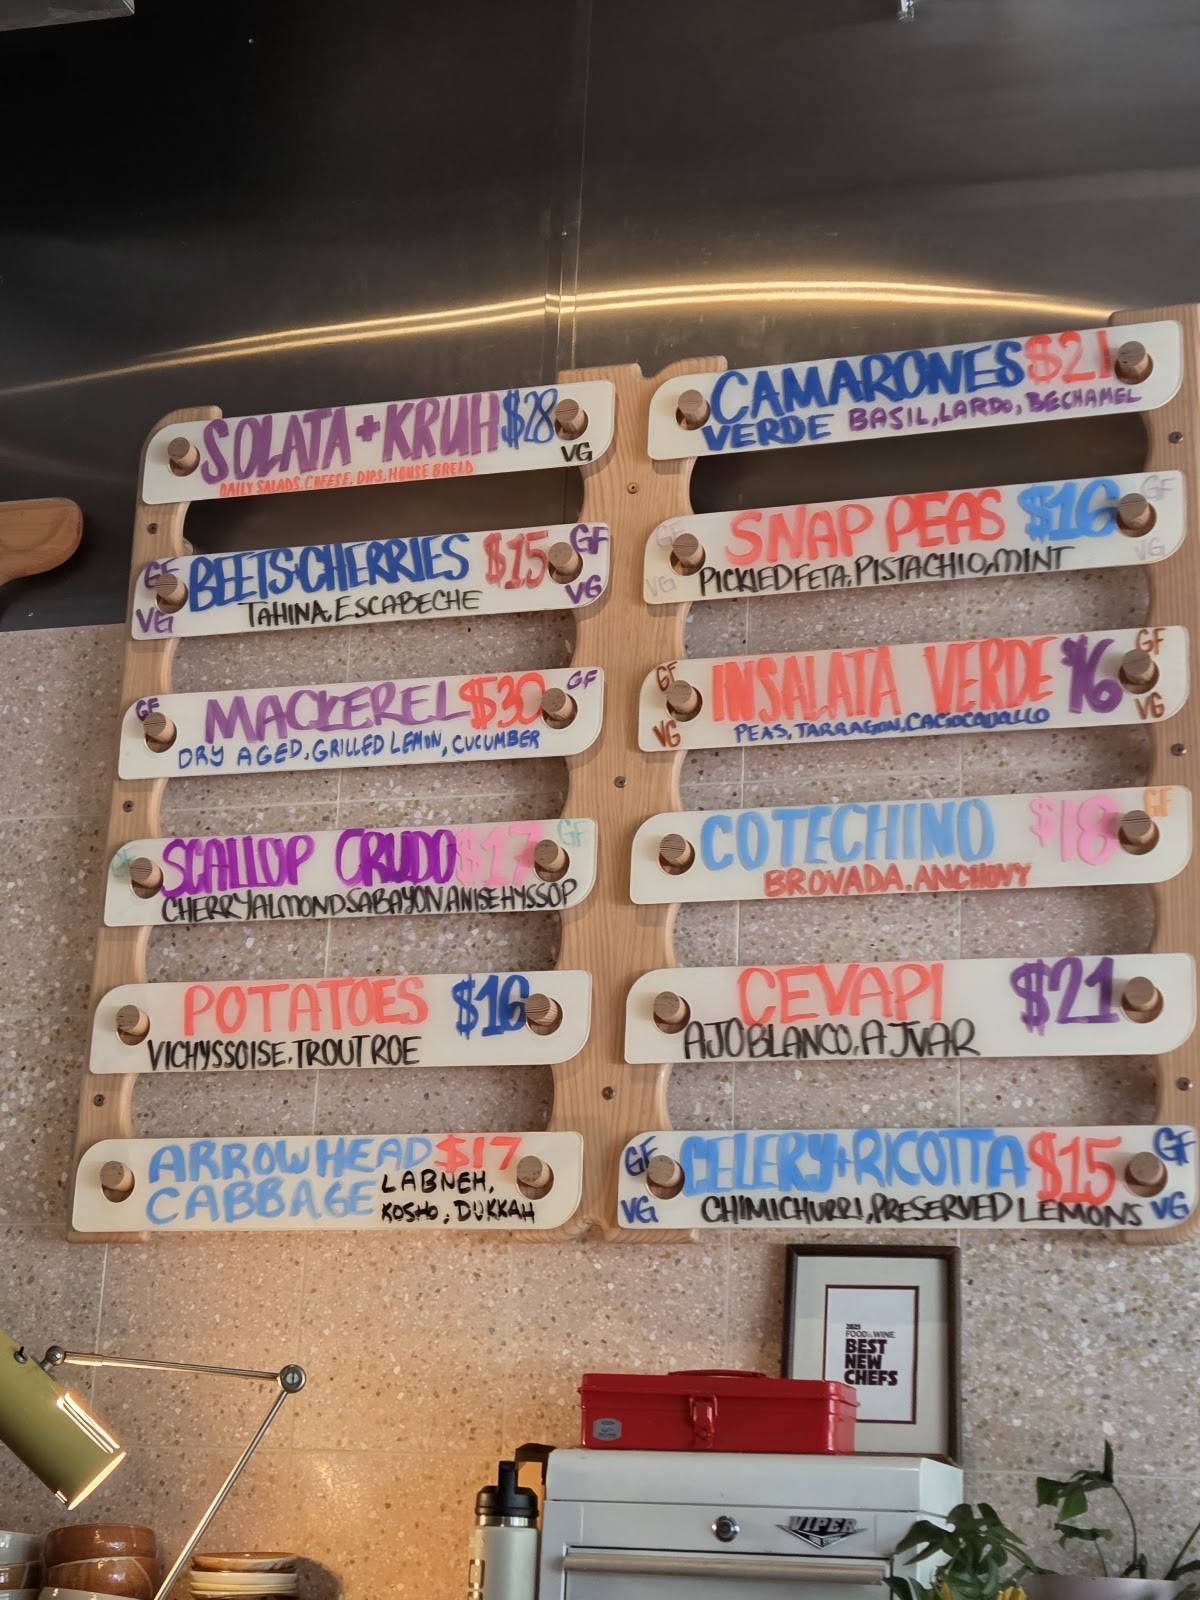 SOLATA + KRUH $28
DAILY SALADS, CHEESE, DIPS, HOUSE BREAD
VG
GF BEETS+CHERRIES $15 GF
VG TAHINA, ESCABECHE VG
GF MACKEREL $30 GF
DRY AGED, GRILLED LEMON, CUCUMBER
GF SCALLOP CRUDO $17 GF
CHERRY ALMOND SABAYON, ANISE HYSSOP
POTATOES $16
VICHYSSOISE, TROUT ROE
ARROWHEAD $17
CABBAGE LABNEH,
KOSHO, DUKKAH
CAMARONES $21
VERDE BASIL, LARDO, BECHAMEL
GF SNAP PEAS $16 GF
VG PICKLED FETA, PISTACHIO, MINT VG
GF INSALATA VERDE $16 GF
VG PEAS, TARRAGON, CACIOCAVALLO VG
COTECHINO $18 GF
BROVADA, ANCHOVY
CEVAPI $21
AJO BLANCO, AJVAR
GF CELERY+RICOTTA $15 GF
VG CHIMICHURRI, PRESERVED LEMONS VG
2025
FOOD & WINE
BEST
NEW
CHEFS
VIPER